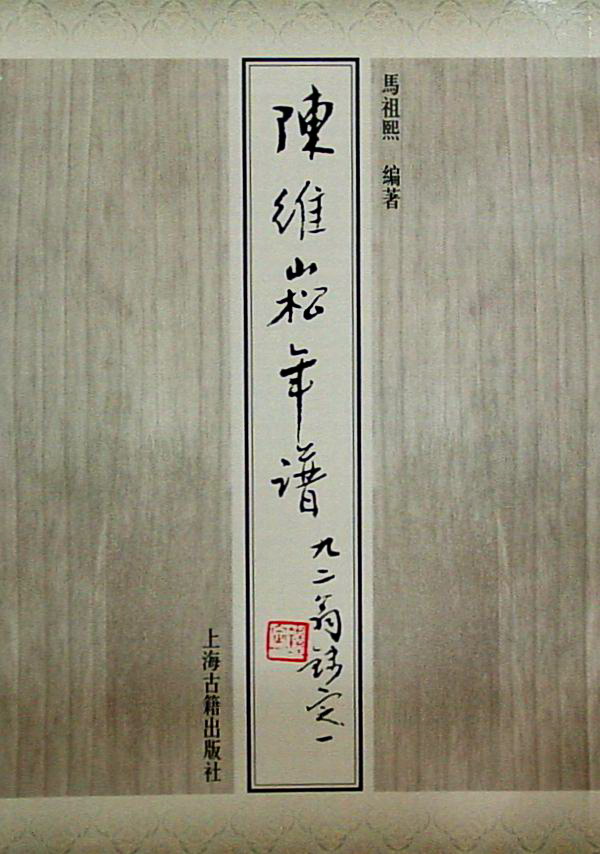 馬祖熙 編著
陳維崧年譜
九二翁錢定一
上海古籍出版社